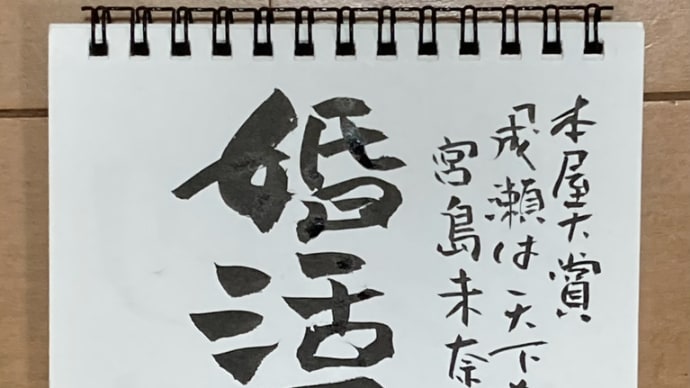 本屋大賞
「成瀬は天下
宮島未奈
婚活